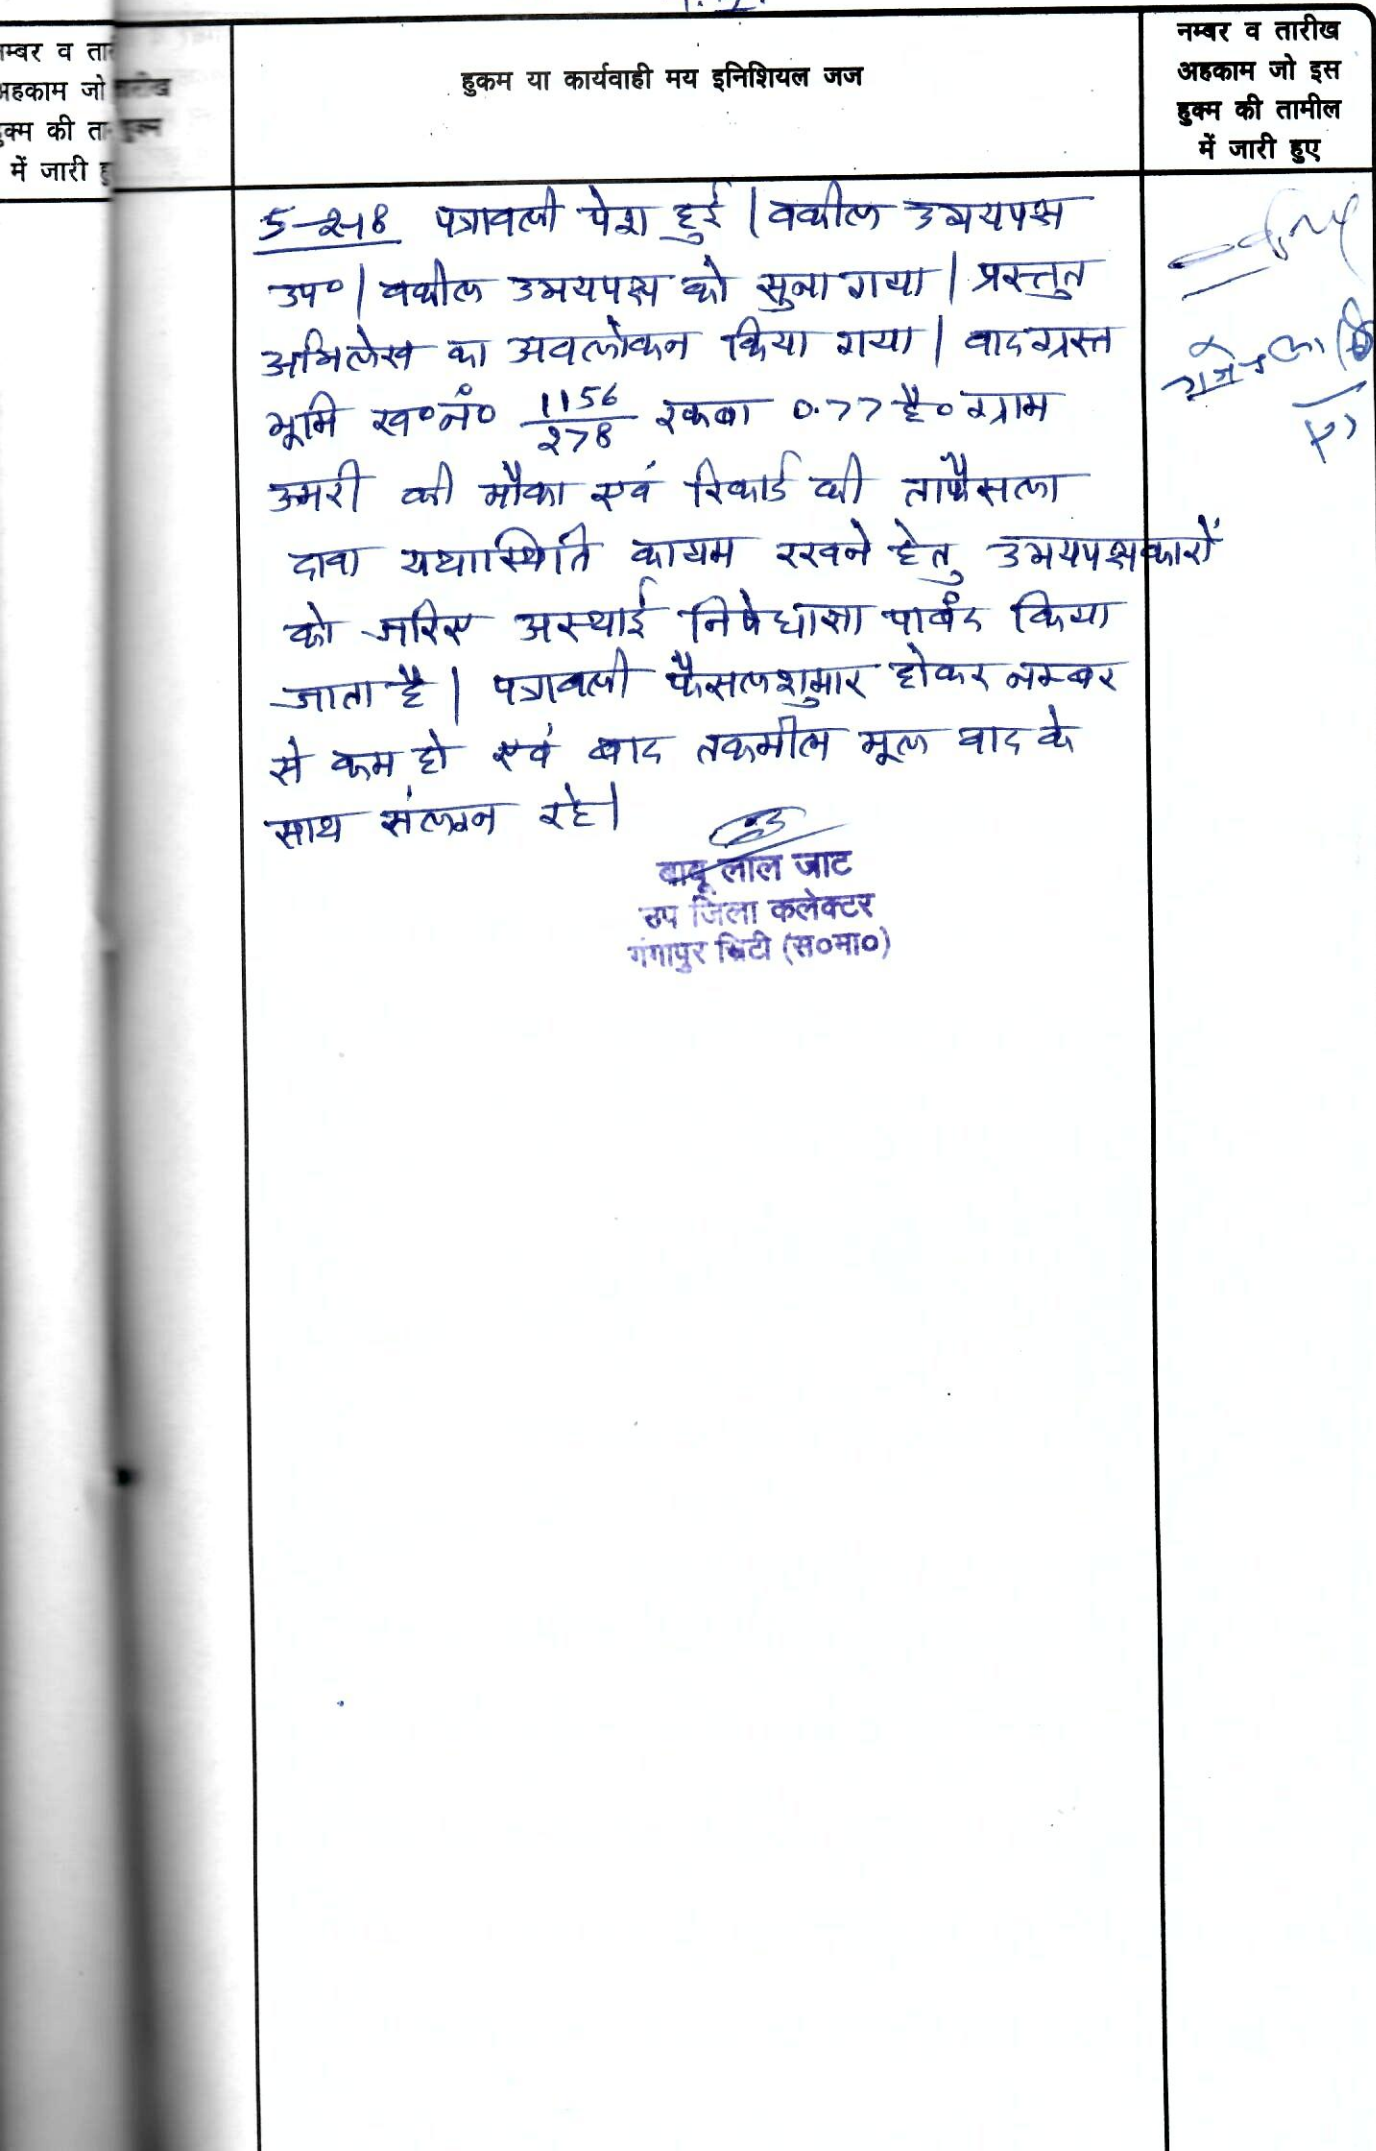 नम्बर व तारीख
अहकाम जो इस
हुक्म की तामील
में जारी हुए
हुकम या कार्यवाही मय इनिशियल जज
नम्बर व तारीख
अहकाम जो इस
हुक्म की तामील
में जारी हुए
पत्रावली पेश हुई | वकील उभयपक्ष
उप० | वकील उभयपक्ष को सुना गया | प्रस्तुत
अभिलेख का अवलोकन किया गया | वादग्रस्त
भूमि ख०नं० 1156/278 रकबा 0.77 है० ग्राम
उमरी की मौका एवं रिकार्ड की ताफैसला
दावा यथास्थिति कायम रखने हेतु उभयपक्षकारों
को जरिए अस्थाई निषेधाज्ञा पाबंद किया
जाता है | पत्रावली फैसलशुमार होकर नम्बर
से कम हो एवं बाद तकमील मूल वाद के
साथ संलग्न रहे |
बाबू लाल जाट
उप जिला कलेक्टर
गंगापुर सिटी (स०मा०)